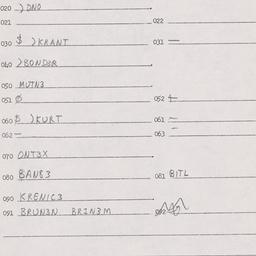 020 ) DNO
021 022
030 $ ) KRANT 031 —
040 ) BONDOR
050 MUTN3
051 Ø 052 +
060 $ ) KURT 061 =
062 — 063 -
070 ONT3X
080 BAN83 081 BITL
090 KRENIC3
091 BRUN3N BRIN3M